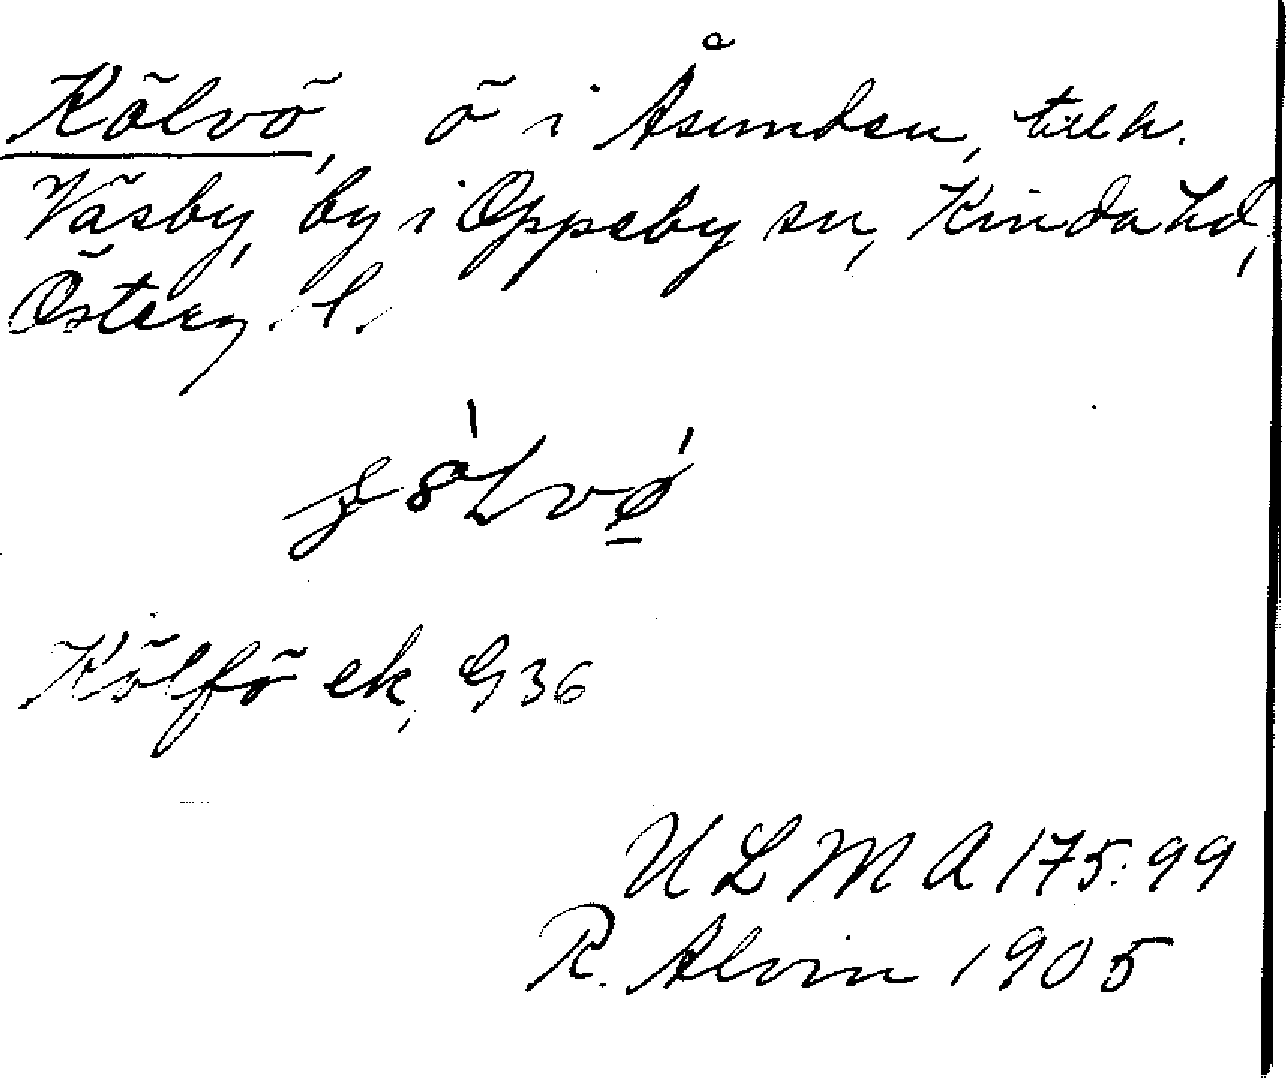 Kölvö, ö i Åsunden, tillh.
Väsby, by i Oppeby sn, Kinda hd,
Österg. l.
Kölfö ek, G 36
ULMA 175:99
R. Alvin 1905